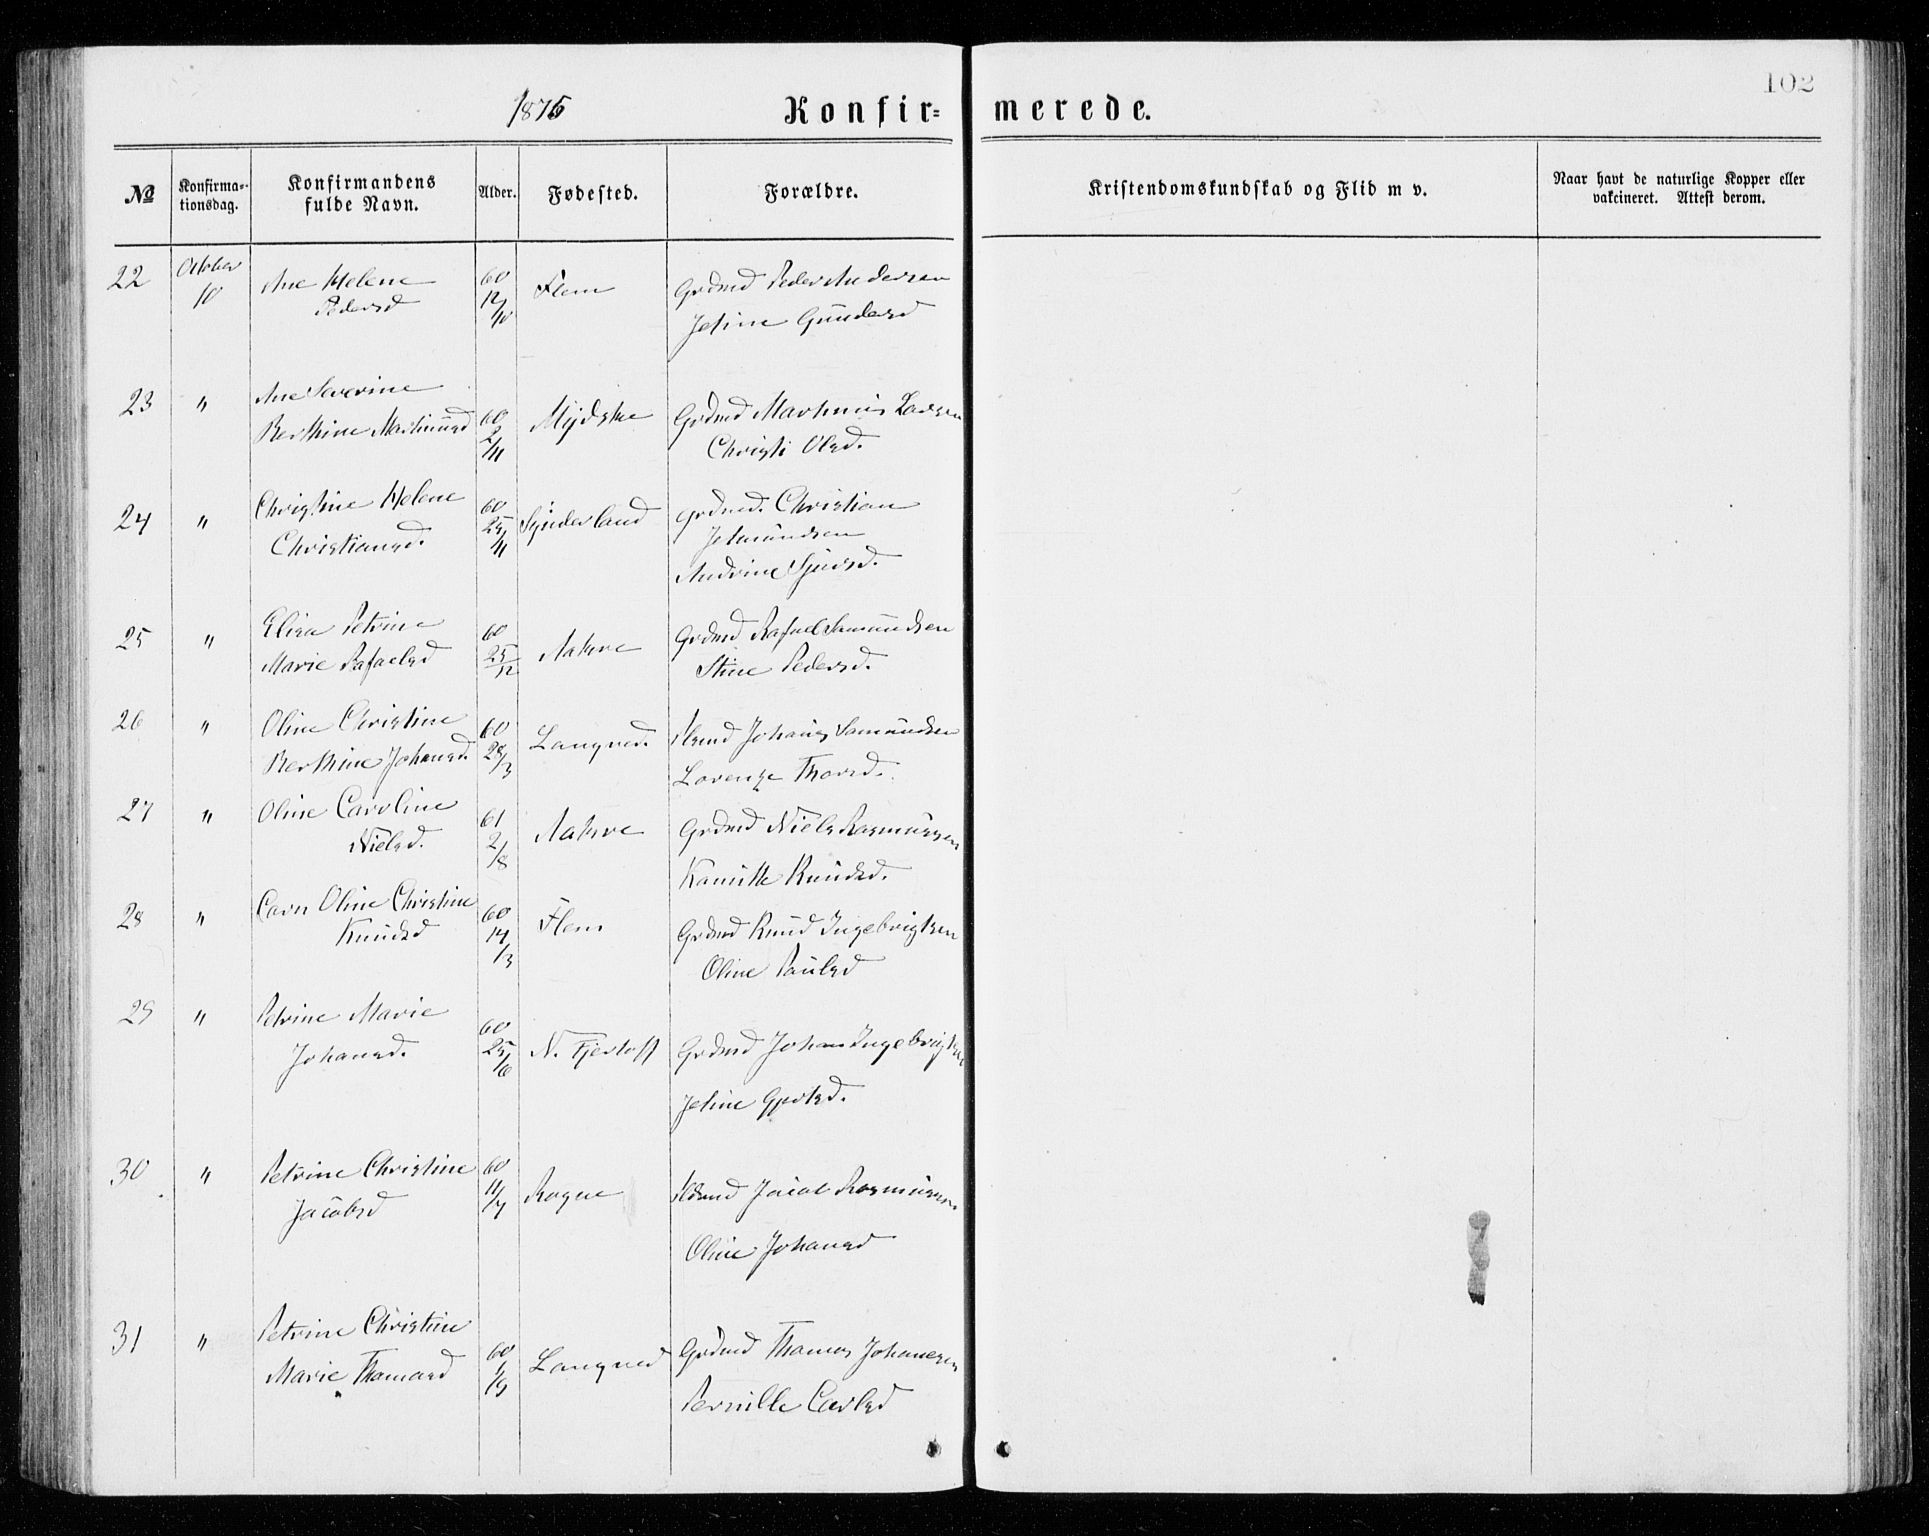 102
1875
Konfir= merede.
№ Konfirma= tionsdag. Konfirmandens fulde Navn. Alder. Fødested. Forældre. Kristendomskundskab og Flid m v. Naar havt de naturlige Kopper eller vakcineret. Attest derom.
22 Oktober 10 Ane Helene 60 Flem Grdmd Peder Andersen
Pedersd 12/10 Jetine Gundersd
23 " Ane Severine
Berthine Martinusd 60 2/11 Mydske Grdmd Martinus Larsen
Christi Olsd.
24 " Christine Helene 60 Synderland Grdmd. Christian
Christiansd. 25/11 Jetmundsen
Andrine Sjursd.
25 " Elisa Petrine 60 Aakre Grdmd Rafael Samundsen
Marie Rafaelsd 25/12 Stine Pedersd.
26 " Oline Christine 60 Longved. Johanes Samundsen
Berthine Johansd. 28/3 Lorense Thorsd.
27 " Oline Caroline 61 Aakre Grdmd Niels Rasmussen
Nielsd. 2/8 Knudsd.
28 " Caren Oline Christine 60 Flem Grdmd Knud Ingebrigtsen
Knudsd 14/3 Oline Paulsd
29 " Petrine Marie 60 N. Fjertoft Grdmd Johan Ingebrigtsen
Johansd. 25/6 Jetine Gjertsd.
30 " Petrine Christine 60 Rogne Jacob Rasmussen
Jacobsd 11/7 Oline Johansd
31 " Petrine Christine 60 Longved Grdmd Thomas Johanesen
Marie Thomasd 1/9 Pernille Carlsd